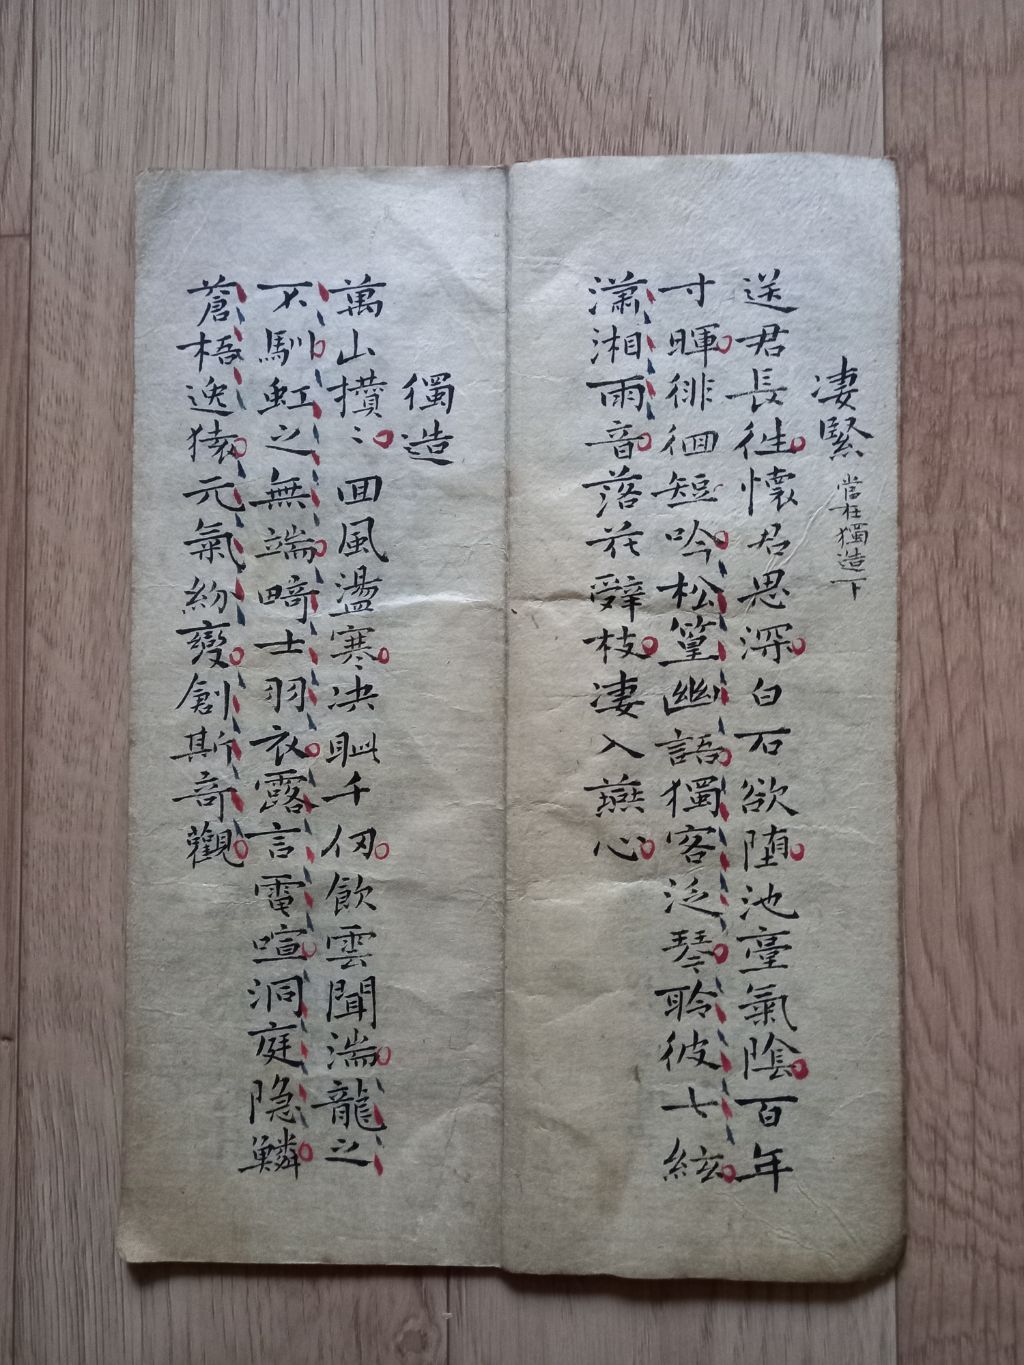 凄緊 當在獨造下
送君長徃懷君思深白石欲墮池臺氣陰百年
寸暉徘徊短吟松篁幽語獨客泛琴聆彼七絃
瀟湘雨音落花辭枝凄入燕心
獨造
萬山攢〻回風盪寒决眦千仞飲雲聞湍龍之
不馴虹之無端畸士羽衣露言電喧洞庭隐鱗
蒼梧逸猿元氣紛變創斯奇觀